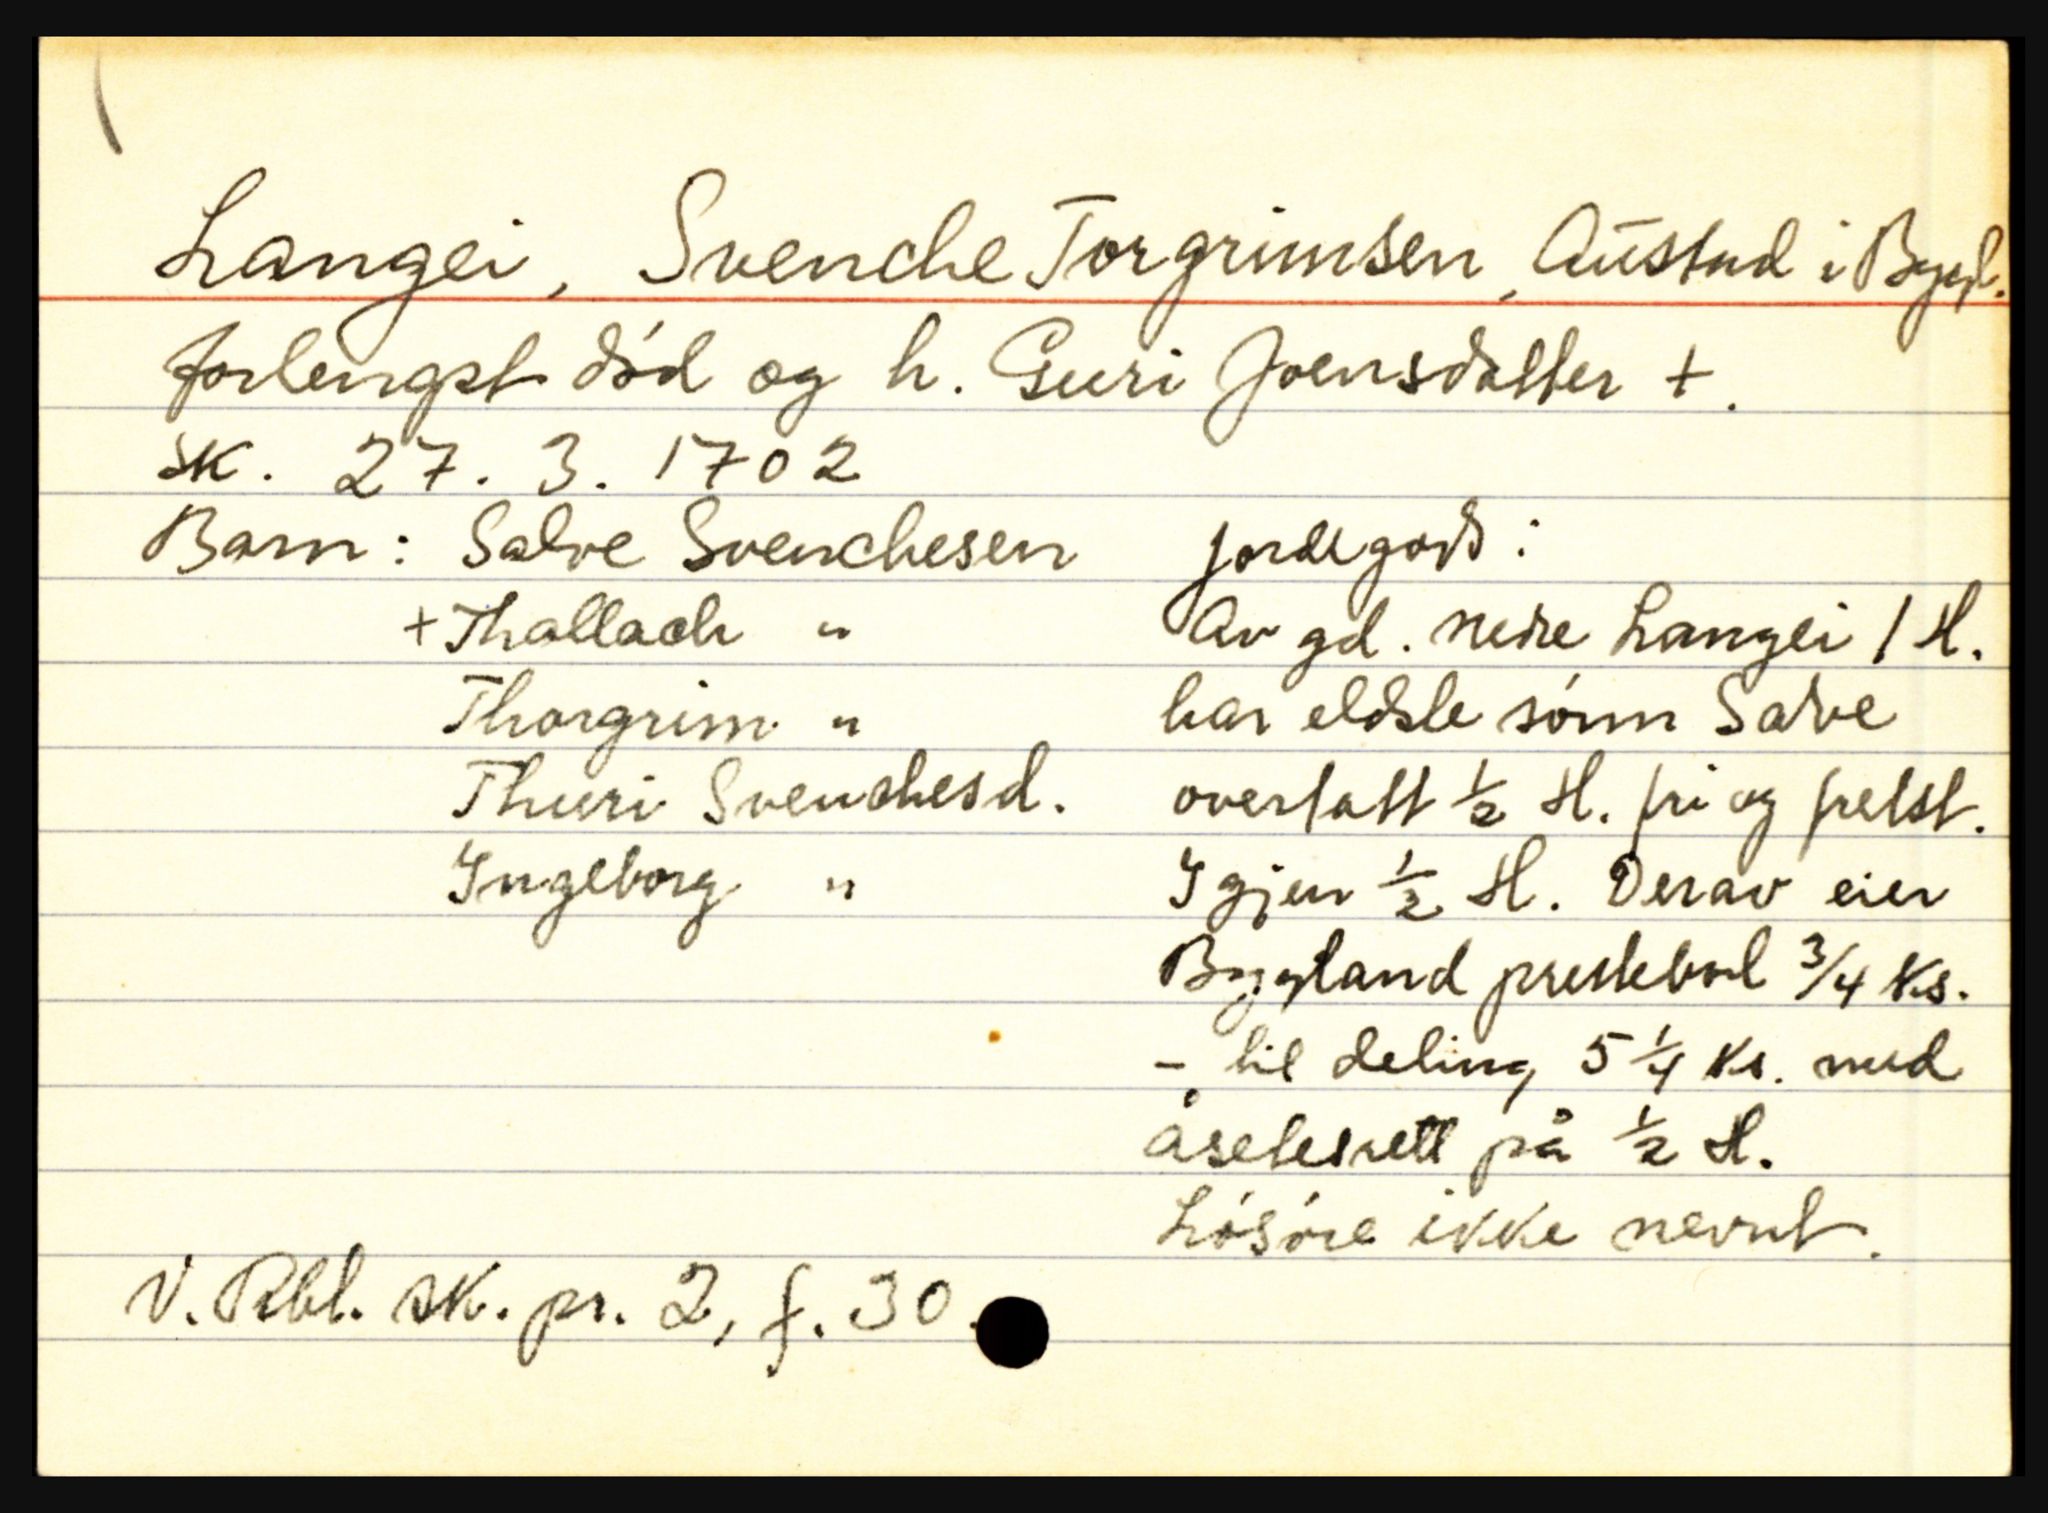 Langei, Svenche Torgrimsen, Austad i Bygl.
forlengst død og h. Guri Joensdatter +.
sk. 27. 3. 1702
Barn: Salve Svenchesen
+ Thallach "
Thorgrim "
Thuri Svenchesd.
Ingeborg "
Jordegods:
Av gd. nedre Langei 1 H.
har eldste sønn Salve
overtatt ½ H. fri og frelst.
Igjen ½ H. Derav eier
Bygland prestebol 3/4 ks.
- til deling 5 1/4 ks. med
åsetesrett på ½ H.
Løsøre ikke nevnt.
V. Rbl. sk. pr. 2, f. 30.